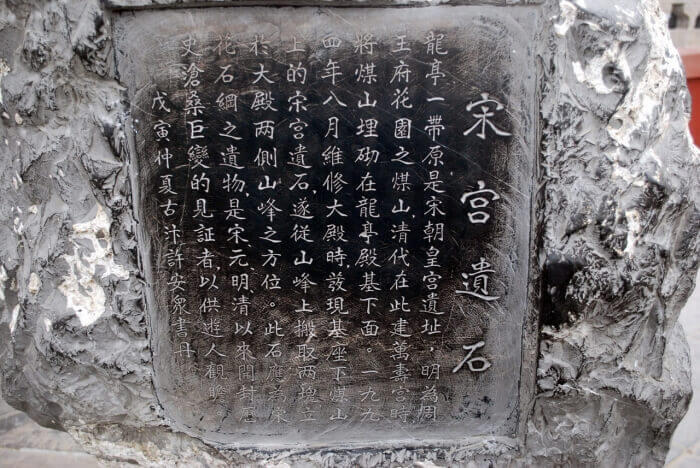 宋宮遺石
龍亭一帶原是宋朝皇宮遺址，明為周
王府花園之煤山，清代在此建萬壽宮時
將煤山埋砌在龍亭殿基下面。一九九
四年八月維修大殿時發現基座下煤山
上的宋宮遺石，遂從山峰上搬取两塊立
於大殿两側山峰之方位。此石應為宋
花石綱之遺物，是宋、元、明、清以來開封歷
史滄桑巨變的見証者，以供遊人觀瞻。
戊寅仲夏古汴許安眾書丹